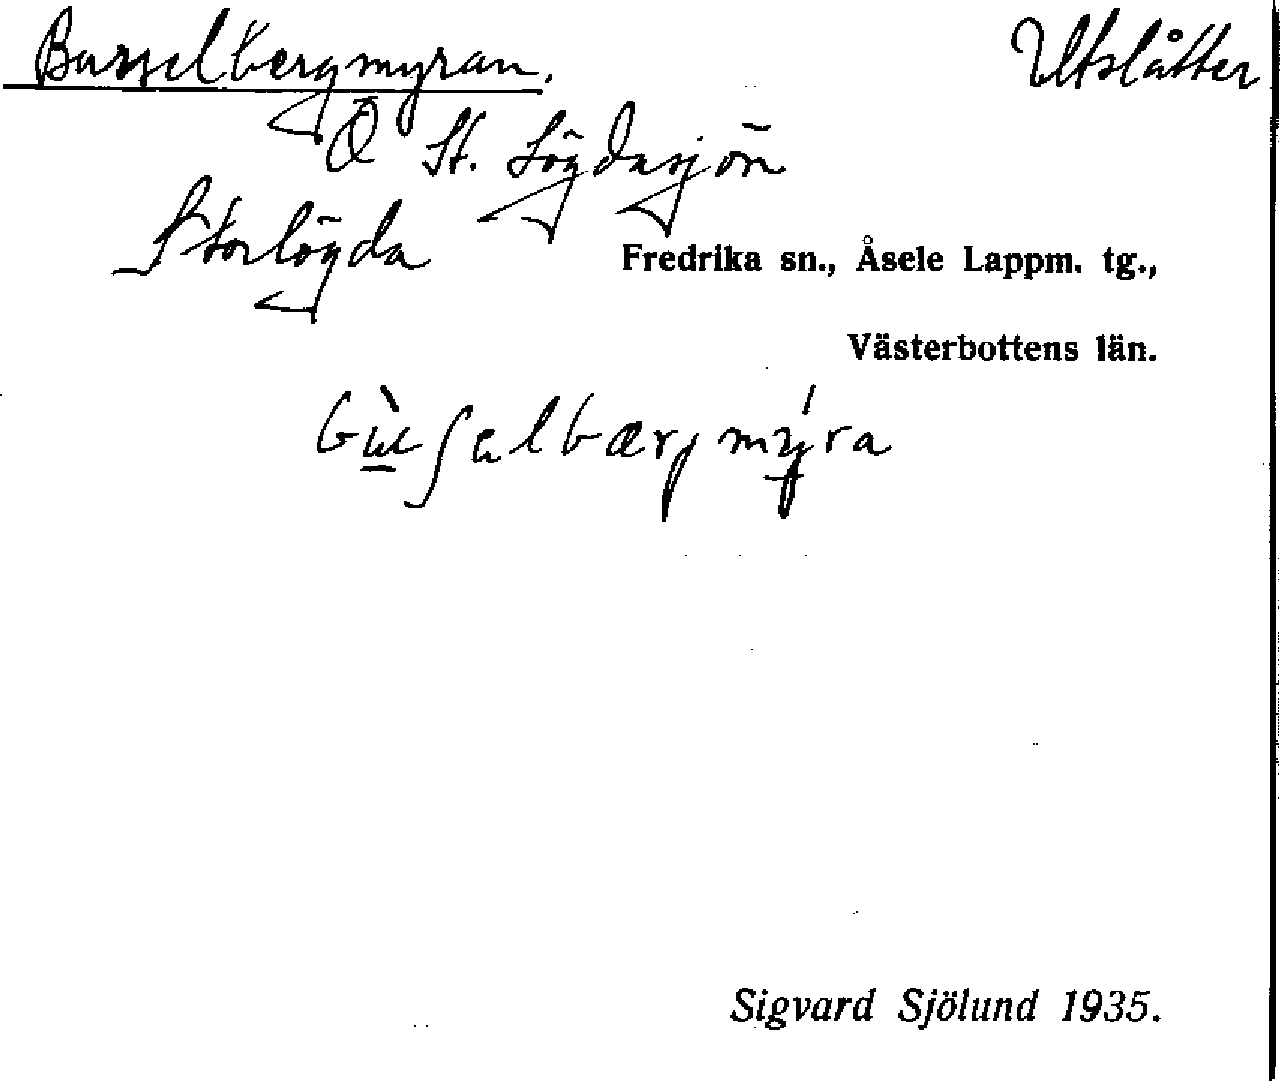 Busselbergmyran. Utslåtter
Ö St. Lögdasjön
Storlögda
Fredrika sn., Åsele Lappm. tg.,
Västerbottens län.
Sigvard Sjölund 1935.